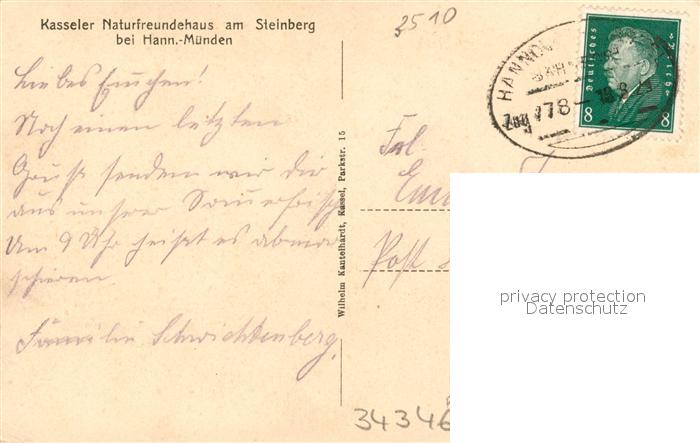 Kasseler Naturfreundehaus am Steinberg
bei Hann.-Münden
Liebes Emchen!
Noch einen letzten
Gruß senden wir Dir
aus unserer Sommerfrische
Um 9 Uhr heißt es abmar
schieren.
Familie Schwichtenberg.
Wilhelm Kantelhardt, Kassel, Parkstr. 15
3510
HANNOV
BAHNPOST
Zug 178
Deutsches Reich
8 8
Frl.
Post
privacy protection
Datenschutz
34346